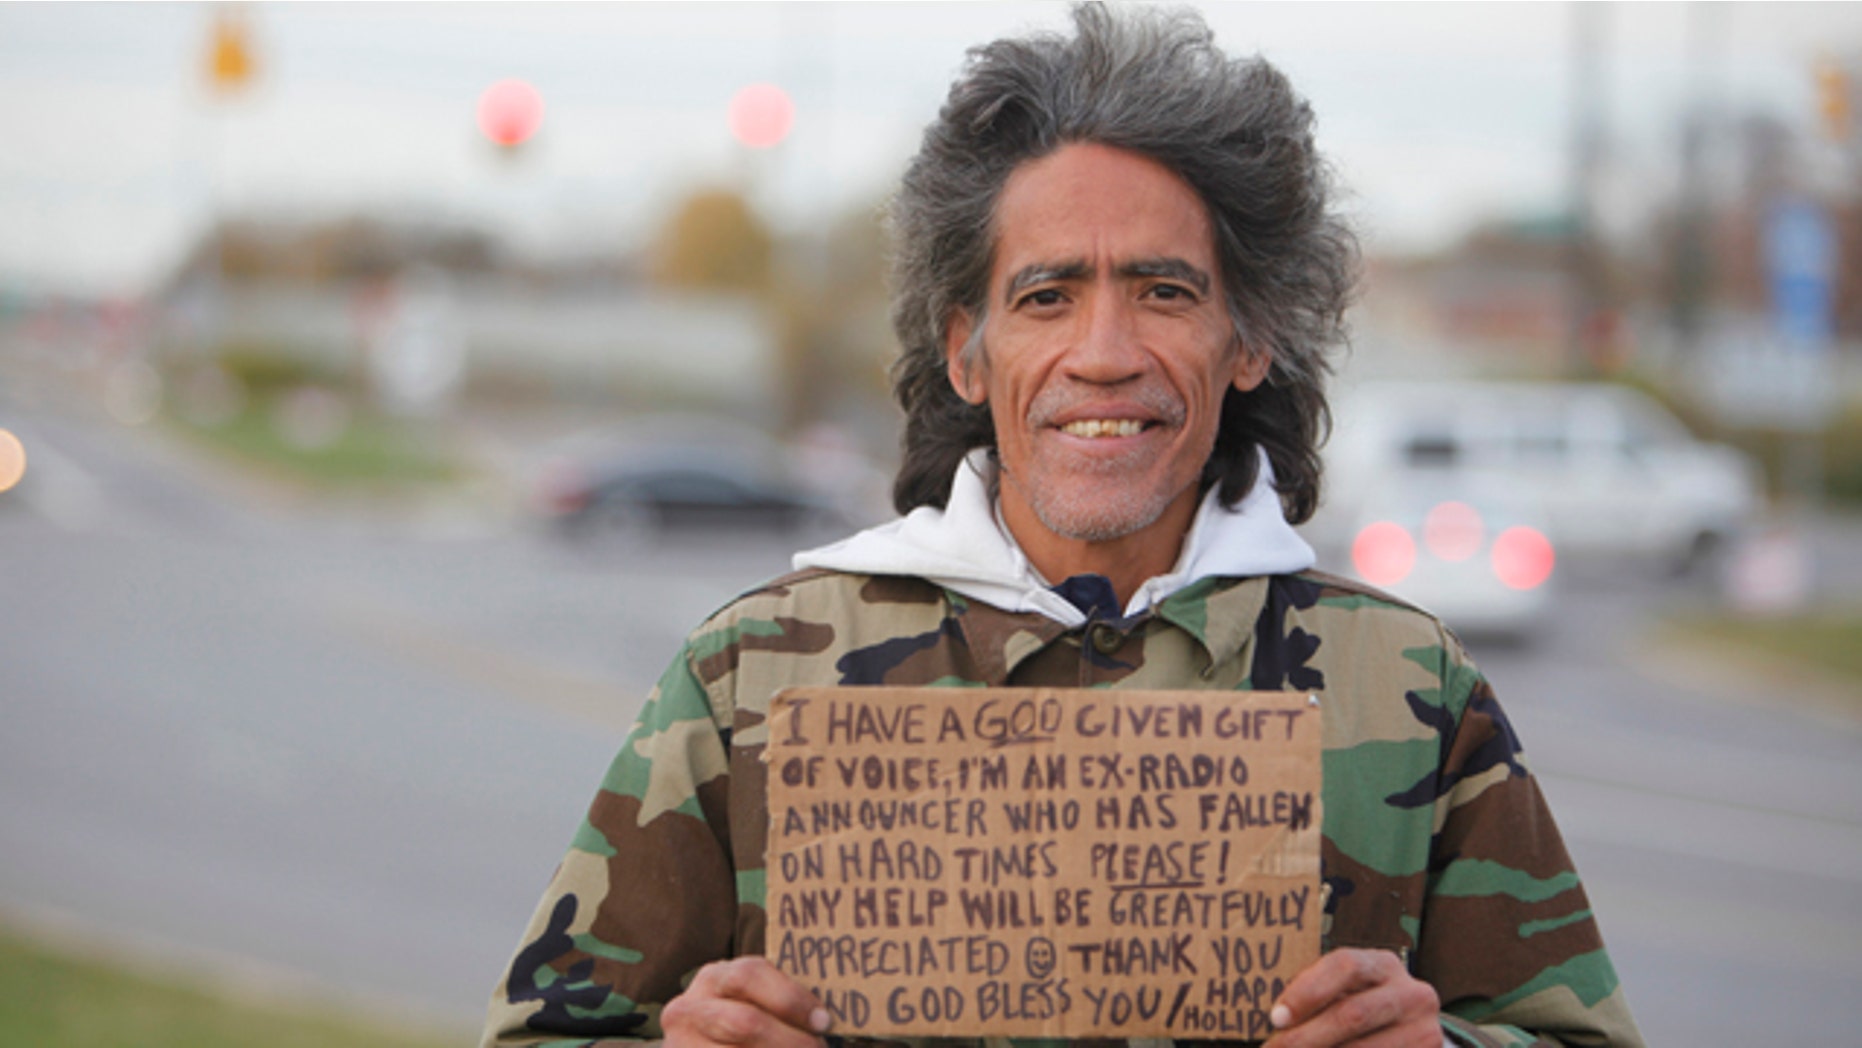 I HAVE A GOD GIVEN GIFT
OF VOICE, I'M AN EX-RADIO
ANNOUNCER WHO HAS FALLEN
ON HARD TIMES PLEASE!
ANY HELP WILL BE GREATFULLY
APPRECIATED ☺ THANK YOU
ND GOD BLESS YOU / HAPP
HOLID